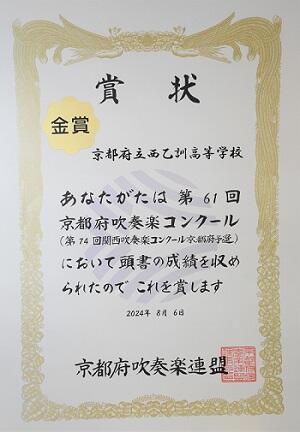 賞状
金賞
京都府立西乙訓高等学校
あなたがたは第61回
京都府吹奏楽コンクール
(第74回関西吹奏楽コンクール京都府予選)
において頭書の成績を収め
られたのでこれを賞します
2024年 8月 6日
京都府吹奏楽連盟